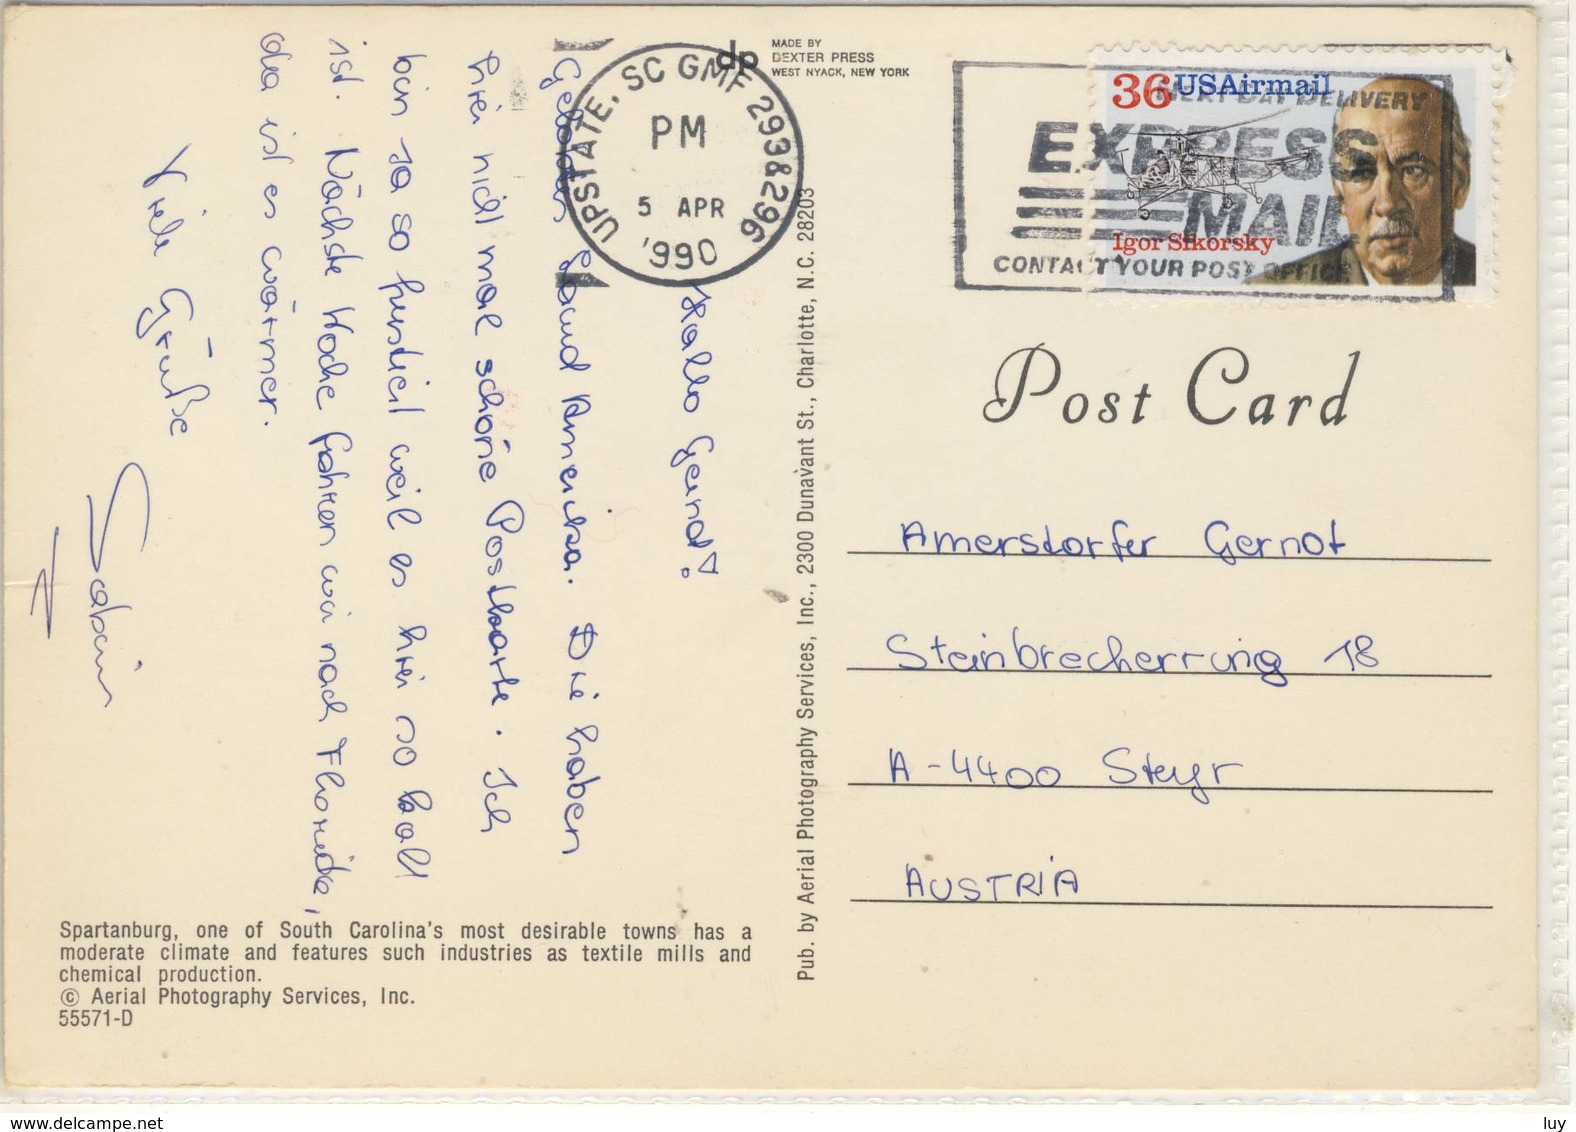 MADE BY
dp DEXTER PRESS
WEST NYACK, NEW YORK
UPSTATE, SC GMF 293&296
PM
5 APR
1990
36 USAirmail
Igor Sikorsky
NEXT DAY DELIVERY
EXPRESS
MAIL
CONTACT YOUR POST OFFICE
Post Card
Hallo Gernot!
Land Amerika. Die haben
hier nicht mal schöne Postkarte. Ich
bin ja so weil es hier so kalt
ist. Nächste Woche fahren wir nach Fhorida,
da ist es wärmer.
Viele Grüße
Sabine
Pub. by Aerial Photography Services, Inc., 2300 Dunavant St., Charlotte, N.C. 28203
Amerstorfer Gernot
Steinbrecherring 18
A-4400 Steyr
AUSTRIA
Spartanburg, one of South Carolina's most desirable towns has a
moderate climate and features such industries as textile mills and
chemical production.
© Aerial Photography Services, Inc.
55571-D
luy